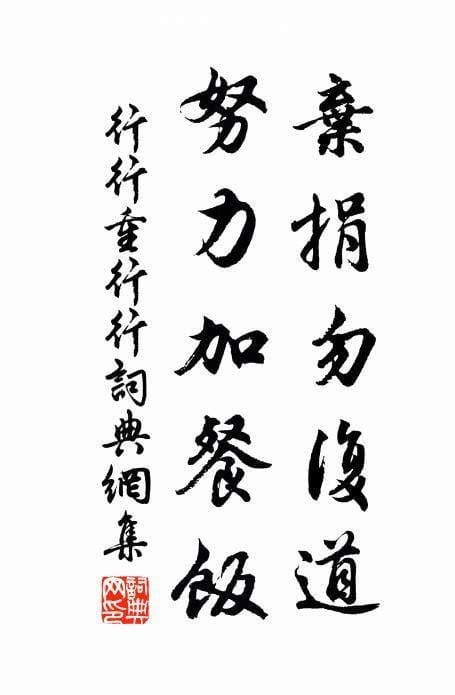 棄捐勿復道
努力加餐飯
行行重行行詞典網集
詞典網印